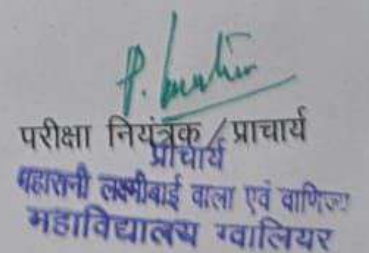 परीक्षा नियंत्रक / प्राचार्य
प्राचार्य
महारानी लक्ष्मीबाई वाला एवं वाणिज्य
महाविद्यालय ग्वालियर